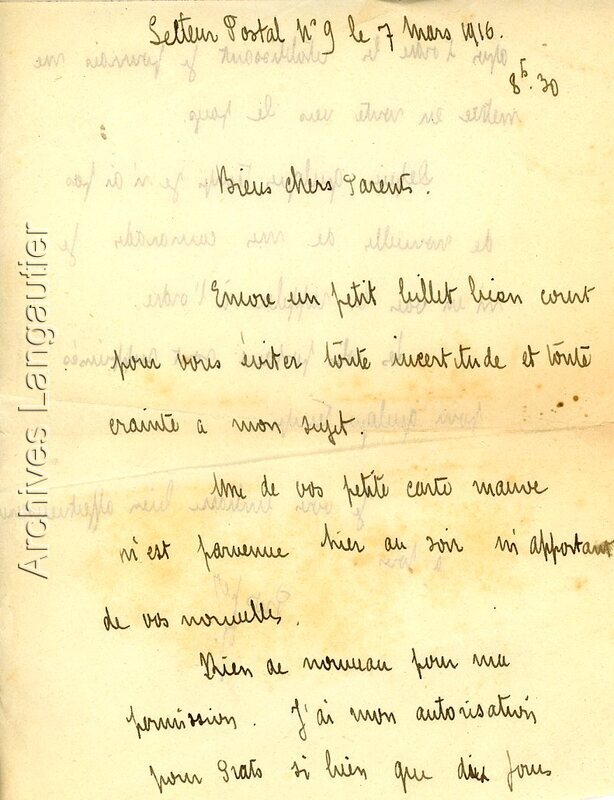 Secteur Postal N°9 le 7 Mars 1916.
8h.30
Biens chers Parents.
Encore un petit billet bien court
pour vous éviter toute incertitude et toute
crainte a mon sujet.
Une de vos petite carte mauve
m'est parvenue hier au soir m'apportant
de vos nouvelles.
Rien de nouveau pour ma
permission. J'ai mon autorisation
pour Prats si bien que dix jours
Archives Langautier